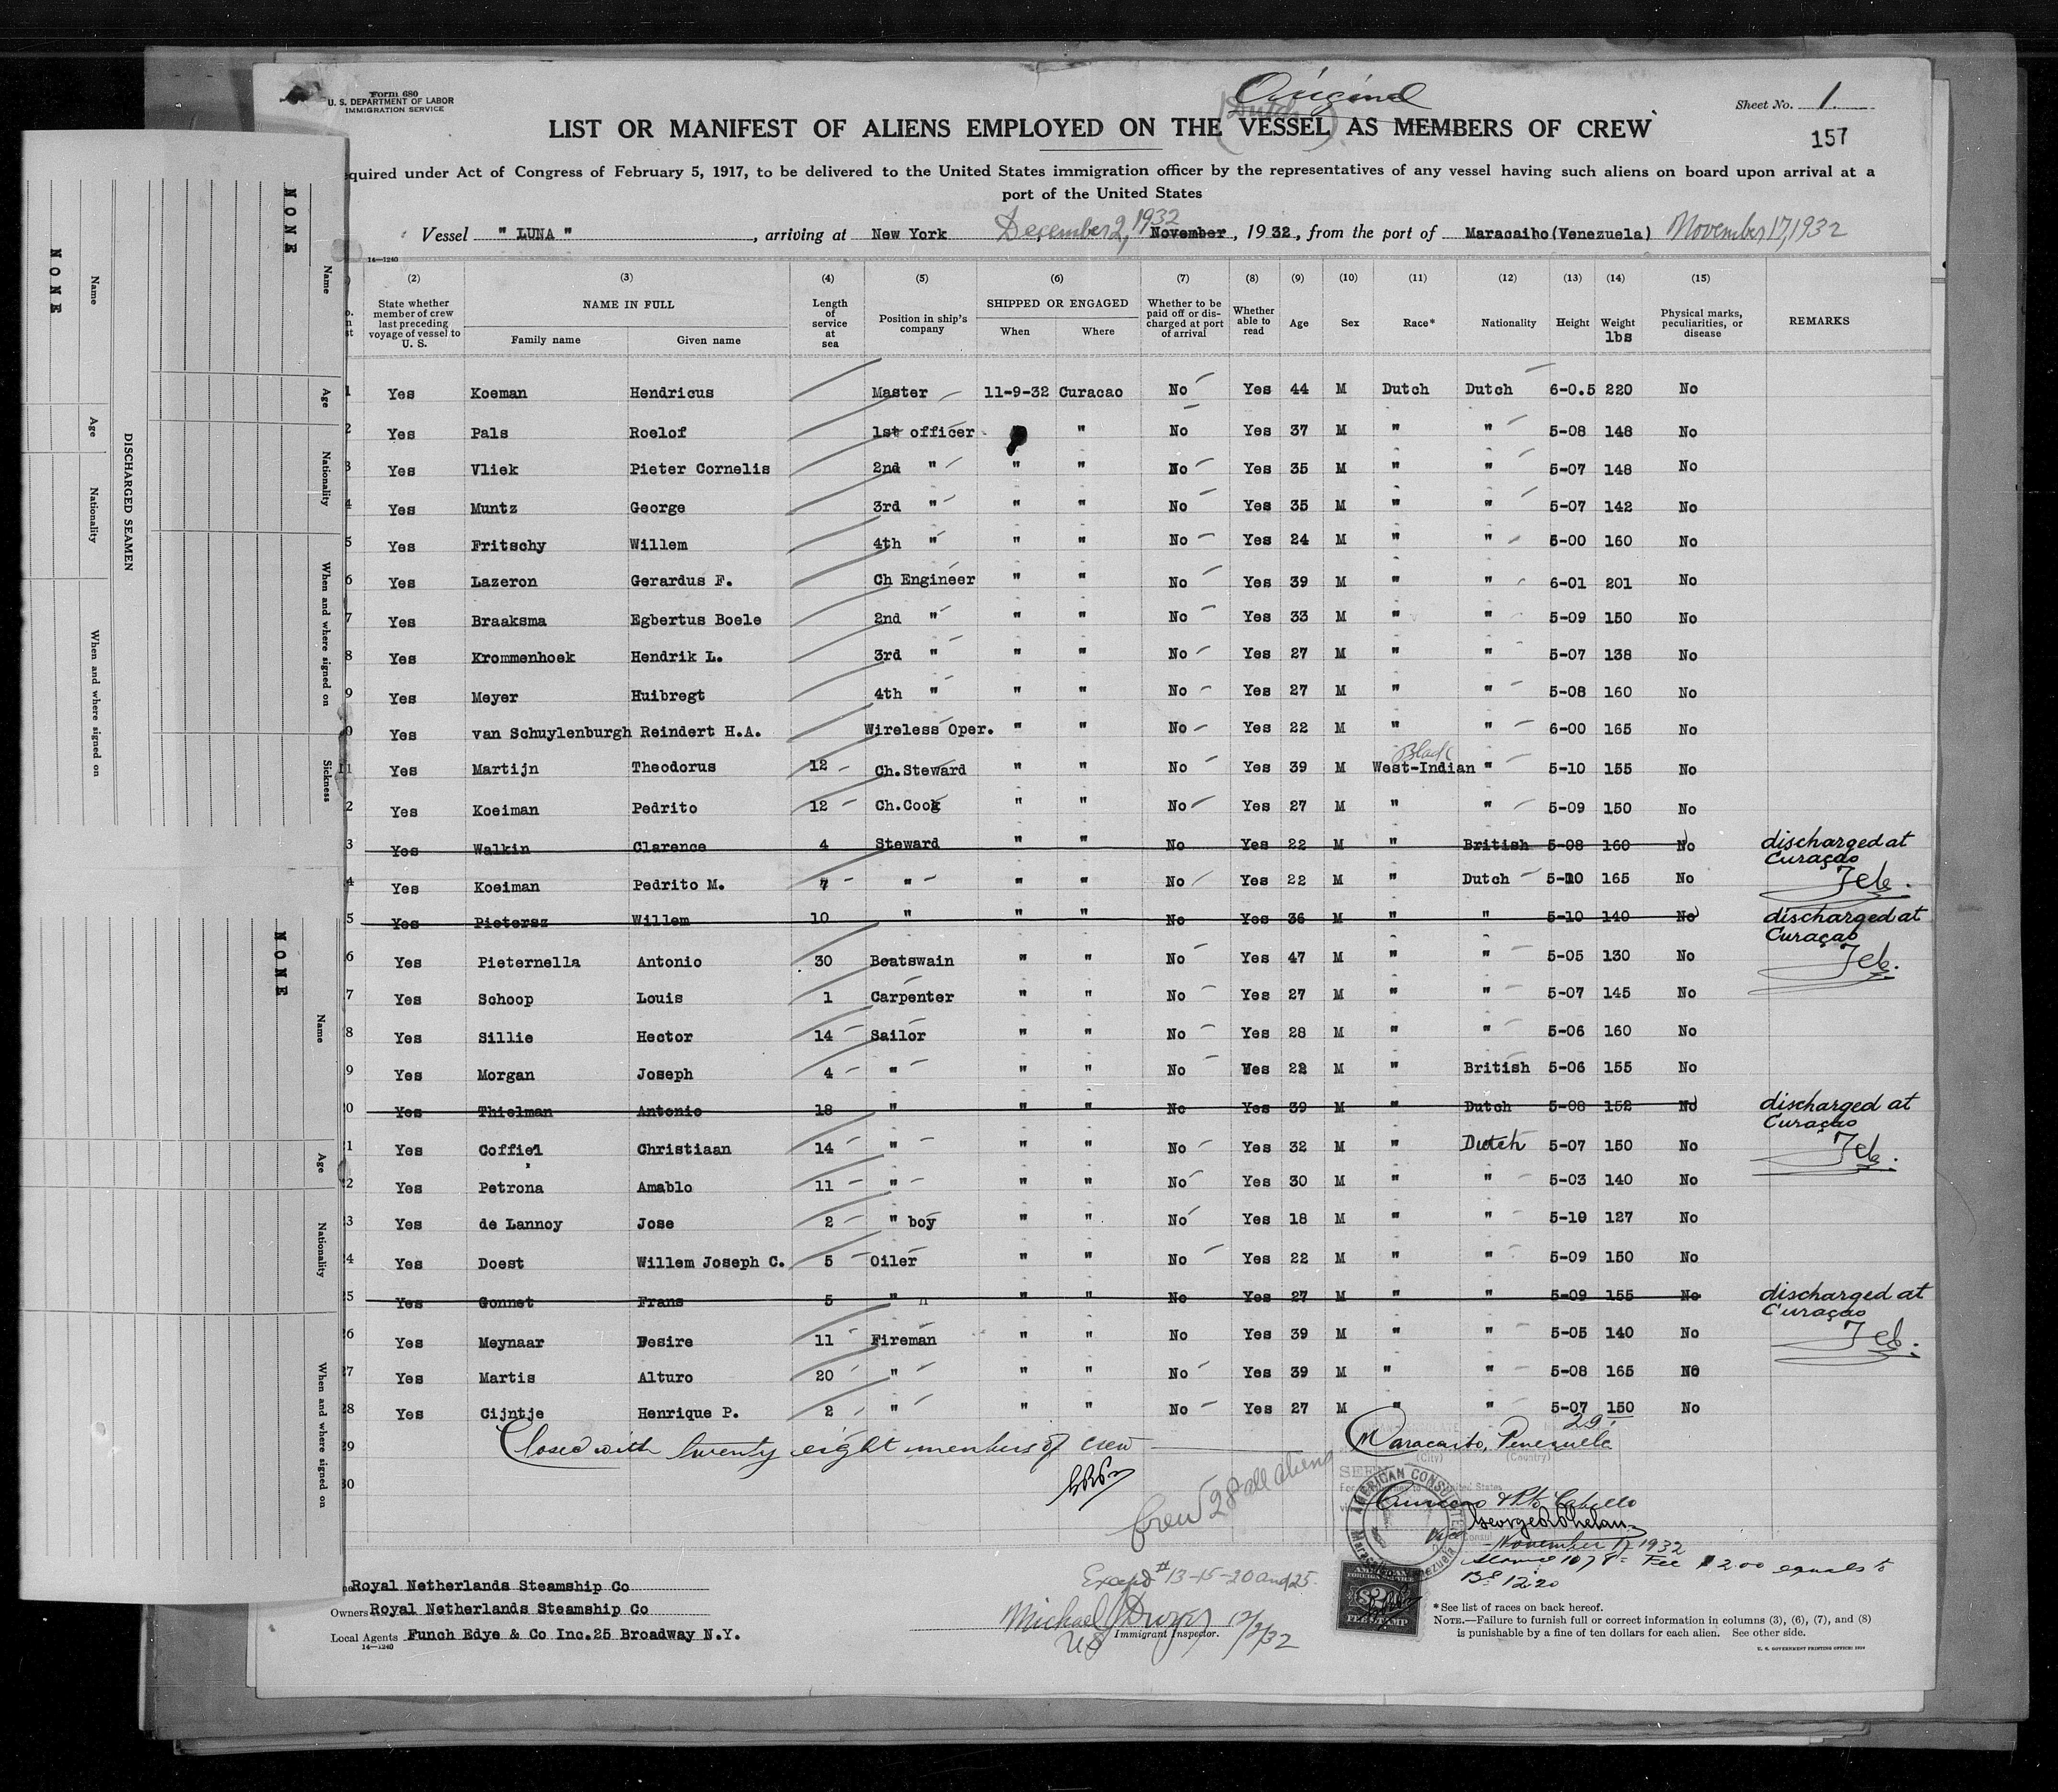 Form 680
U. S. DEPARTMENT OF LABOR
IMMIGRATION SERVICE
Original
(Dutch)
Sheet No. 1
157
LIST OR MANIFEST OF ALIENS EMPLOYED ON THE VESSEL AS MEMBERS OF CREW
quired under Act of Congress of February 5, 1917, to be delivered to the United States immigration officer by the representatives of any vessel having such aliens on board upon arrival at a
port of the United States
Vessel " LUNA " , arriving at New York December 2, 1932 November , 19 32, from the port of Maracaibo(Venezuela) November 17, 1932
14—1240
(2) (3) (4) (5) (6) (7) (8) (9) (10) (11) (12) (13) (14) (15)
State whether member of crew last preceding voyage of vessel to U. S. NAME IN FULL Family name Given name Length of service at sea Position in ship's company SHIPPED OR ENGAGED When Where Whether to be paid off or discharged at port of arrival Whether able to read Age Sex Race* Nationality Height Weight lbs Physical marks, peculiarities, or disease REMARKS
1 Yes Koeman Hendricus Master 11-9-32 Curacao No Yes 44 M Dutch Dutch 6-0.5 220 No
2 Yes Pals Roelof 1st officer " No Yes 37 M " " 5-08 148 No
3 Yes Vliek Pieter Cornelis 2nd " " " No Yes 35 M " " 5-07 148 No
4 Yes Muntz George 3rd " " " No Yes 35 M " " 5-07 142 No
5 Yes Fritschy Willem 4th " " " No Yes 24 M " " 6-00 160 No
6 Yes Lazeron Gerardus F. Ch Engineer " " No Yes 39 M " " 6-01 201 No
7 Yes Braaksma Egbertus Boele 2nd " " " No Yes 33 M " " 5-09 150 No
8 Yes Krommenhoek Hendrik L. 3rd " " " No Yes 27 M " " 5-07 138 No
9 Yes Meyer Huibregt 4th " " " No Yes 27 M " " 5-08 160 No
0 Yes van Schuylenburgh Reindert H.A. Wireless Oper. " " No Yes 22 M " " 6-00 165 No
Black
11 Yes Martijn Theodorus 12 Ch.Steward " " No Yes 39 M West-Indian " 5-10 155 No
2 Yes Koeiman Pedrito 12 Ch.Cook " " No Yes 27 M " " 5-09 150 No
3 Yes Walkin Clarence 4 Steward " " No Yes 22 M " British 5-08 160 No discharged at
Curaçao
4 Yes Koeiman Pedrito M. 7 " " " No Yes 22 M " Dutch 5-10 165 No
5 Yes Pietersz Willem 10 " " " No Yes 36 M " " 5-10 140 No discharged at
Curaçao
6 Yes Pieternella Antonio 30 Boatswain " " No Yes 47 M " " 5-05 130 No
7 Yes Schoop Louis 1 Carpenter " " No Yes 27 M " " 5-07 145 No
8 Yes Sillie Hector 14 Sailor " " No Yes 28 M " " 5-06 160 No
9 Yes Morgan Joseph 4 " " " No Yes 22 M " British 5-06 155 No
20 Yes Thielman Antonio 18 " " " No Yes 39 M " Dutch 5-08 152 No discharged at
Curaçao
21 Yes Coffiel Christiaan 14 " " " No Yes 32 M " Dutch 5-07 150 No
22 Yes Petrona Amablo 11 " " " No Yes 30 M " " 5-03 140 No
23 Yes de Lannoy Jose 2 " boy " " No Yes 18 M " " 5-10 127 No
24 Yes Doest Willem Joseph C. 5 Oiler " " No Yes 22 M " " 5-09 150 No
25 Yes Gonnet Frans 5 " " " No Yes 27 M " " 5-09 155 No discharged at
Curaçao
26 Yes Meynaar Desire 11 Fireman " " No Yes 39 M " " 5-05 140 No
27 Yes Martis Alturo 20 " " " No Yes 39 M " " 5-08 165 No
28 Yes Cijntje Henrique P. 2 " " " No Yes 27 M " " 5-07 150 No
29 Closed with twenty eight members of crew
Maracaibo, Venezuela
(City) (Country)
30
SEEN
AMERICAN CONSULATE
Maracaibo, Venezuela
Curacao & Pto Cabello
George R Phelan
Vice Consul
November 17 1932
Fee $2.00 equals to
Bs 12.20
Crew 28 all aliens
Except # 13-15-20 and 25.
Michael Dwyer 12/2/32
US Immigrant Inspector.
Royal Netherlands Steamship Co
Owners Royal Netherlands Steamship Co
Local Agents Funch Edye & Co Inc.25 Broadway N.Y.
14—1240
AMERICAN
FEE STAMP
*See list of races on back hereof.
NOTE.—Failure to furnish full or correct information in columns (3), (6), (7), and (8)
is punishable by a fine of ten dollars for each alien. See other side.
U. S. GOVERNMENT PRINTING OFFICE
NONE
Name
Age
Nationality
When and where signed on
DISCHARGED SEAMEN
NONE
Name
Age
Nationality
When and where signed on
Sickness
NONE
Name
Age
Nationality
When and where signed on